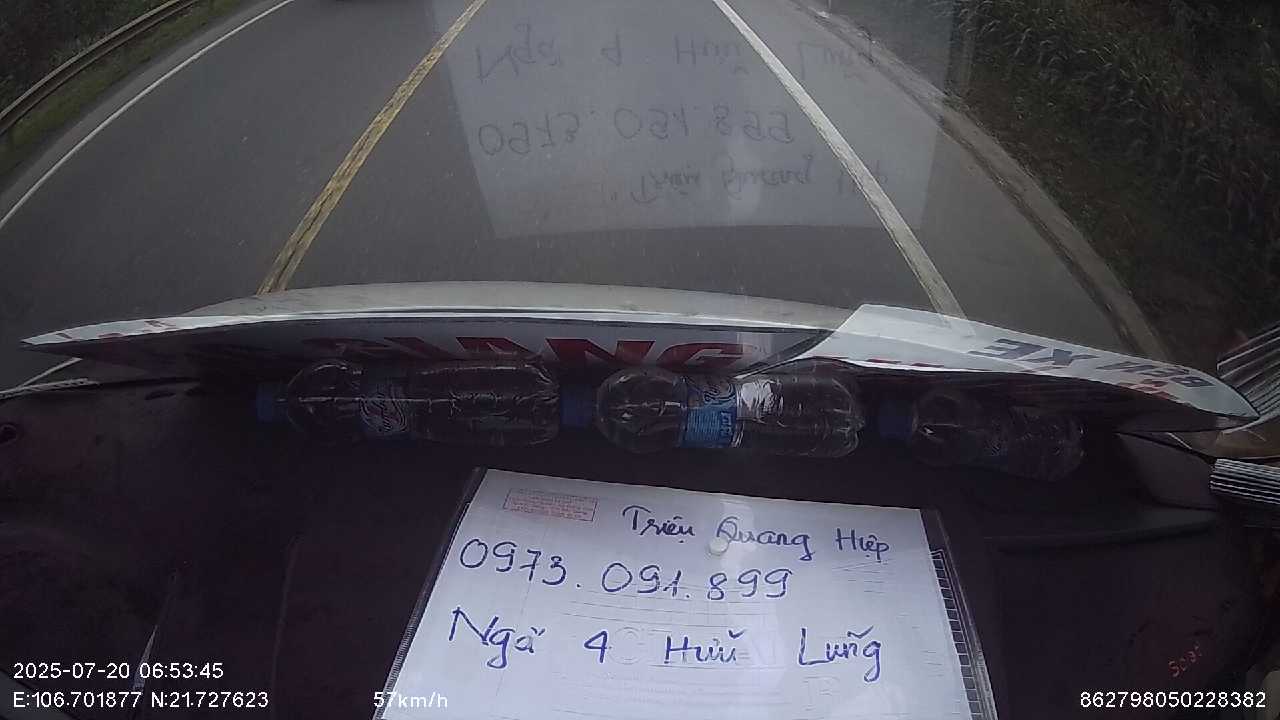 GIANG
BẾN XE
Triệu Quang Hiệp
0973.091.899
Ngã 4 Hữu Lũng
2025-07-20 06:53:45
E:106.701877 N:21.727623
57km/h
862798050228382